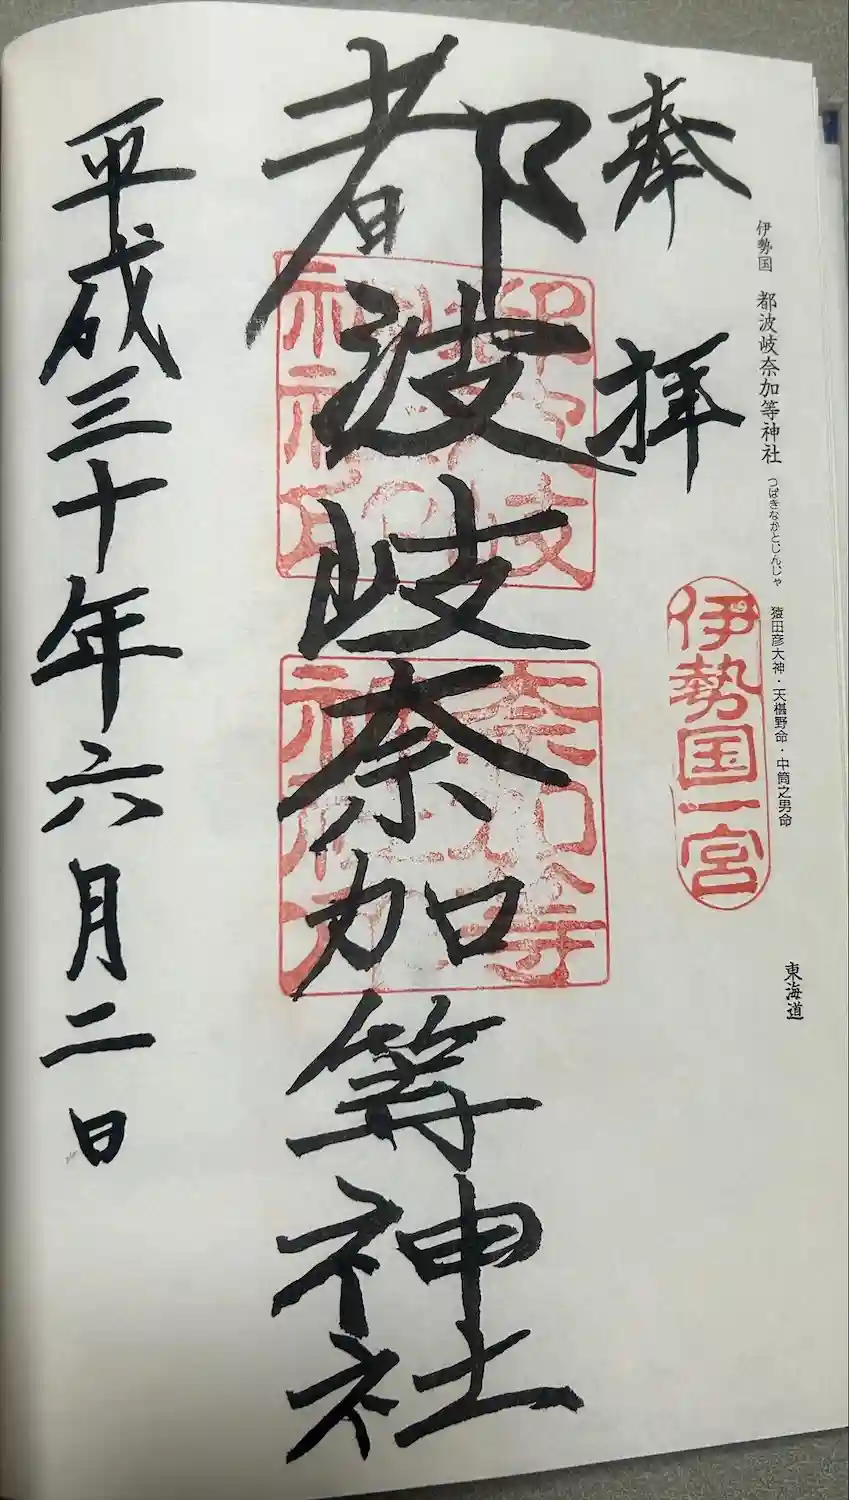 伊勢国 都波岐奈加等神社 つばきなかとじんじゃ 猿田彦大神・天椹野命・中筒之男命 東海道
奉拝
伊勢国一宮
都波岐奈加等神社
平成三十年六月二日